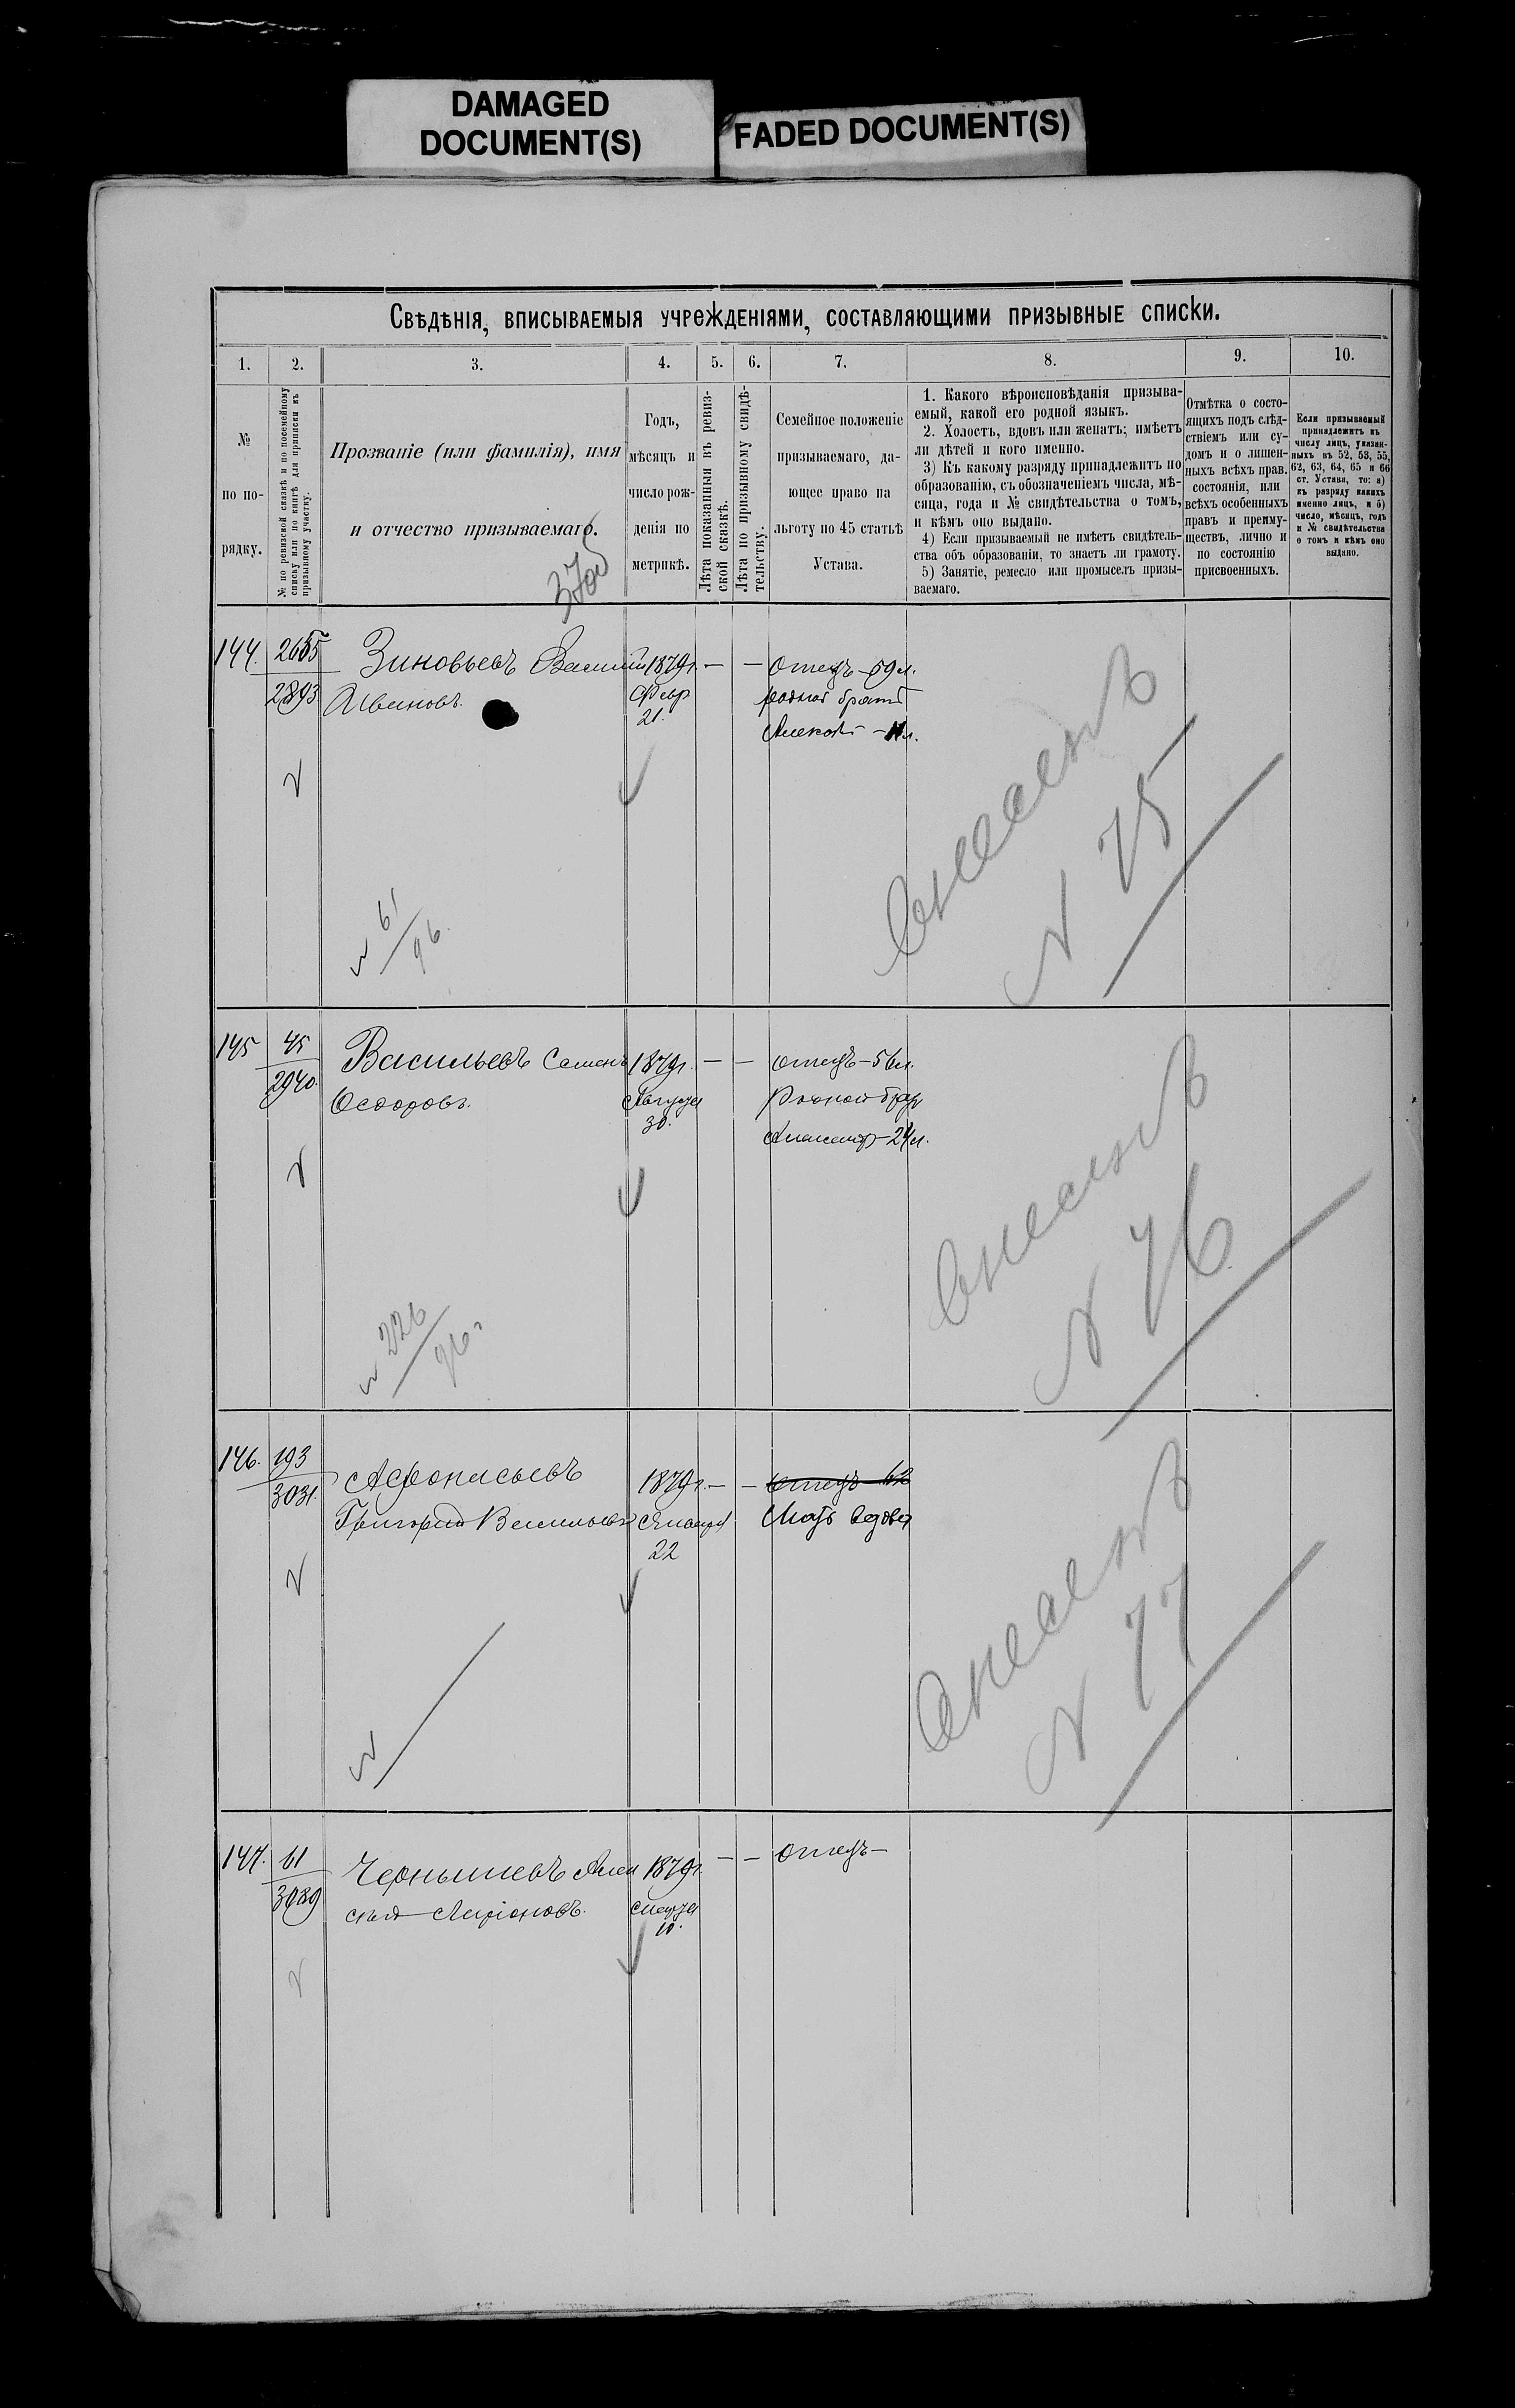 DAMAGED
DOCUMENT(S)
FADED DOCUMENT(S)
Свѣдѣнія, вписываемыя учрежденіями, составляющими призывные списки.
1. 2. 3. 4. 5. 6. 7. 8. 9. 10.
№
по по-
рядку.
№ по ревизской сказкѣ и по посемейному
списку или по книгѣ для приписки къ
призывному участку.
Прозваніе (или фамилія), имя
и отчество призываемаго.
Годъ,
мѣсяцъ и
число рож-
денія по
метрикѣ.
Лѣта показанныя въ ревиз-
ской сказкѣ.
Лѣта по призывному свидѣ-
тельству.
Семейное положеніе
призываемаго, да-
ющее право на
льготу по 45 статьѣ
Устава.
1. Какого вѣроисповѣданія призыва-
емый, какой его родной языкъ.
2. Холостъ, вдовъ или женатъ; имѣетъ
ли дѣтей и кого именно.
3) Къ какому разряду принадлежитъ по
образованію, съ обозначеніемъ числа, мѣ-
сяца, года и № свидѣтельства о томъ,
и кѣмъ оно выдано.
4) Если призываемый не имѣетъ свидѣтель-
ства объ образованіи, то знаетъ ли грамоту.
5) Занятіе, ремесло или промыселъ призы-
ваемаго.
Отмѣтка о состо-
ящихъ подъ слѣд-
ствіемъ или су-
домъ и о лишен-
ныхъ всѣхъ правъ
состоянія, или
всѣхъ особенныхъ
правъ и преиму-
ществъ, лично и
по состоянію
присвоенныхъ.
Если призываемый
принадлежитъ къ
числу лицъ, указан-
ныхъ въ 52, 53, 55,
62, 63, 64, 65 и 66
ст. Устава, то: а)
къ разряду какихъ
именно лицъ, и б)
число, мѣсяцъ, годъ
и № свидѣтельства
о томъ и кѣмъ оно
выдано.
144. 2655 Зиновьевъ Василій 1879г. — — Отецъ — 59 л.
2893 Ивановъ. Февр родной братъ
21. Алексѣй — 11 л.
N 61
96.
N 75
145 45 Васильевъ Семенъ 1879г. — — отецъ — 56 л.
2940. Ѳедоровъ. Августа Родной бра
30. Александр — 24 л.
N 226
96г
N 76
146. 193 Афонасьевъ 1879г. — — Отецъ 62
3031. Григорій Васильевъ Января Мать вдова
22
N
N 77
147. 61 Чернышевъ Алек 1879г. — — Отецъ —
3089 сѣй Ларіоновъ. Марта
10.